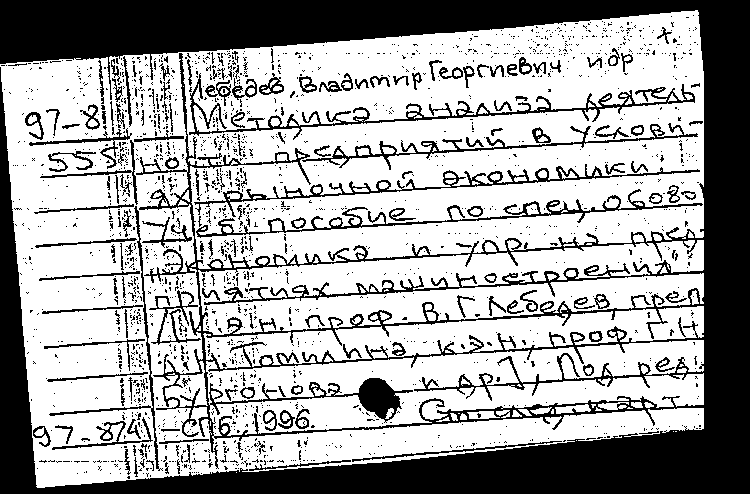 т.
Лебедев, Владимир Георгиевич и др
97-8 Методика анализа деятель-
555 ности предприятий в услови-
ях рыночной экономики:
Учеб. пособие по спец. 060801
„Экономика и упр. на пред-
приятиях машиностроения"
/ [К.э.н. проф. В.Г. Лебедев, преп.
Д.Н. Томилина, к.э.н., проф. Г.Н.
Бургонова и др.]; Под ред.
97-8741 -СПб, 1996. См. след. карт